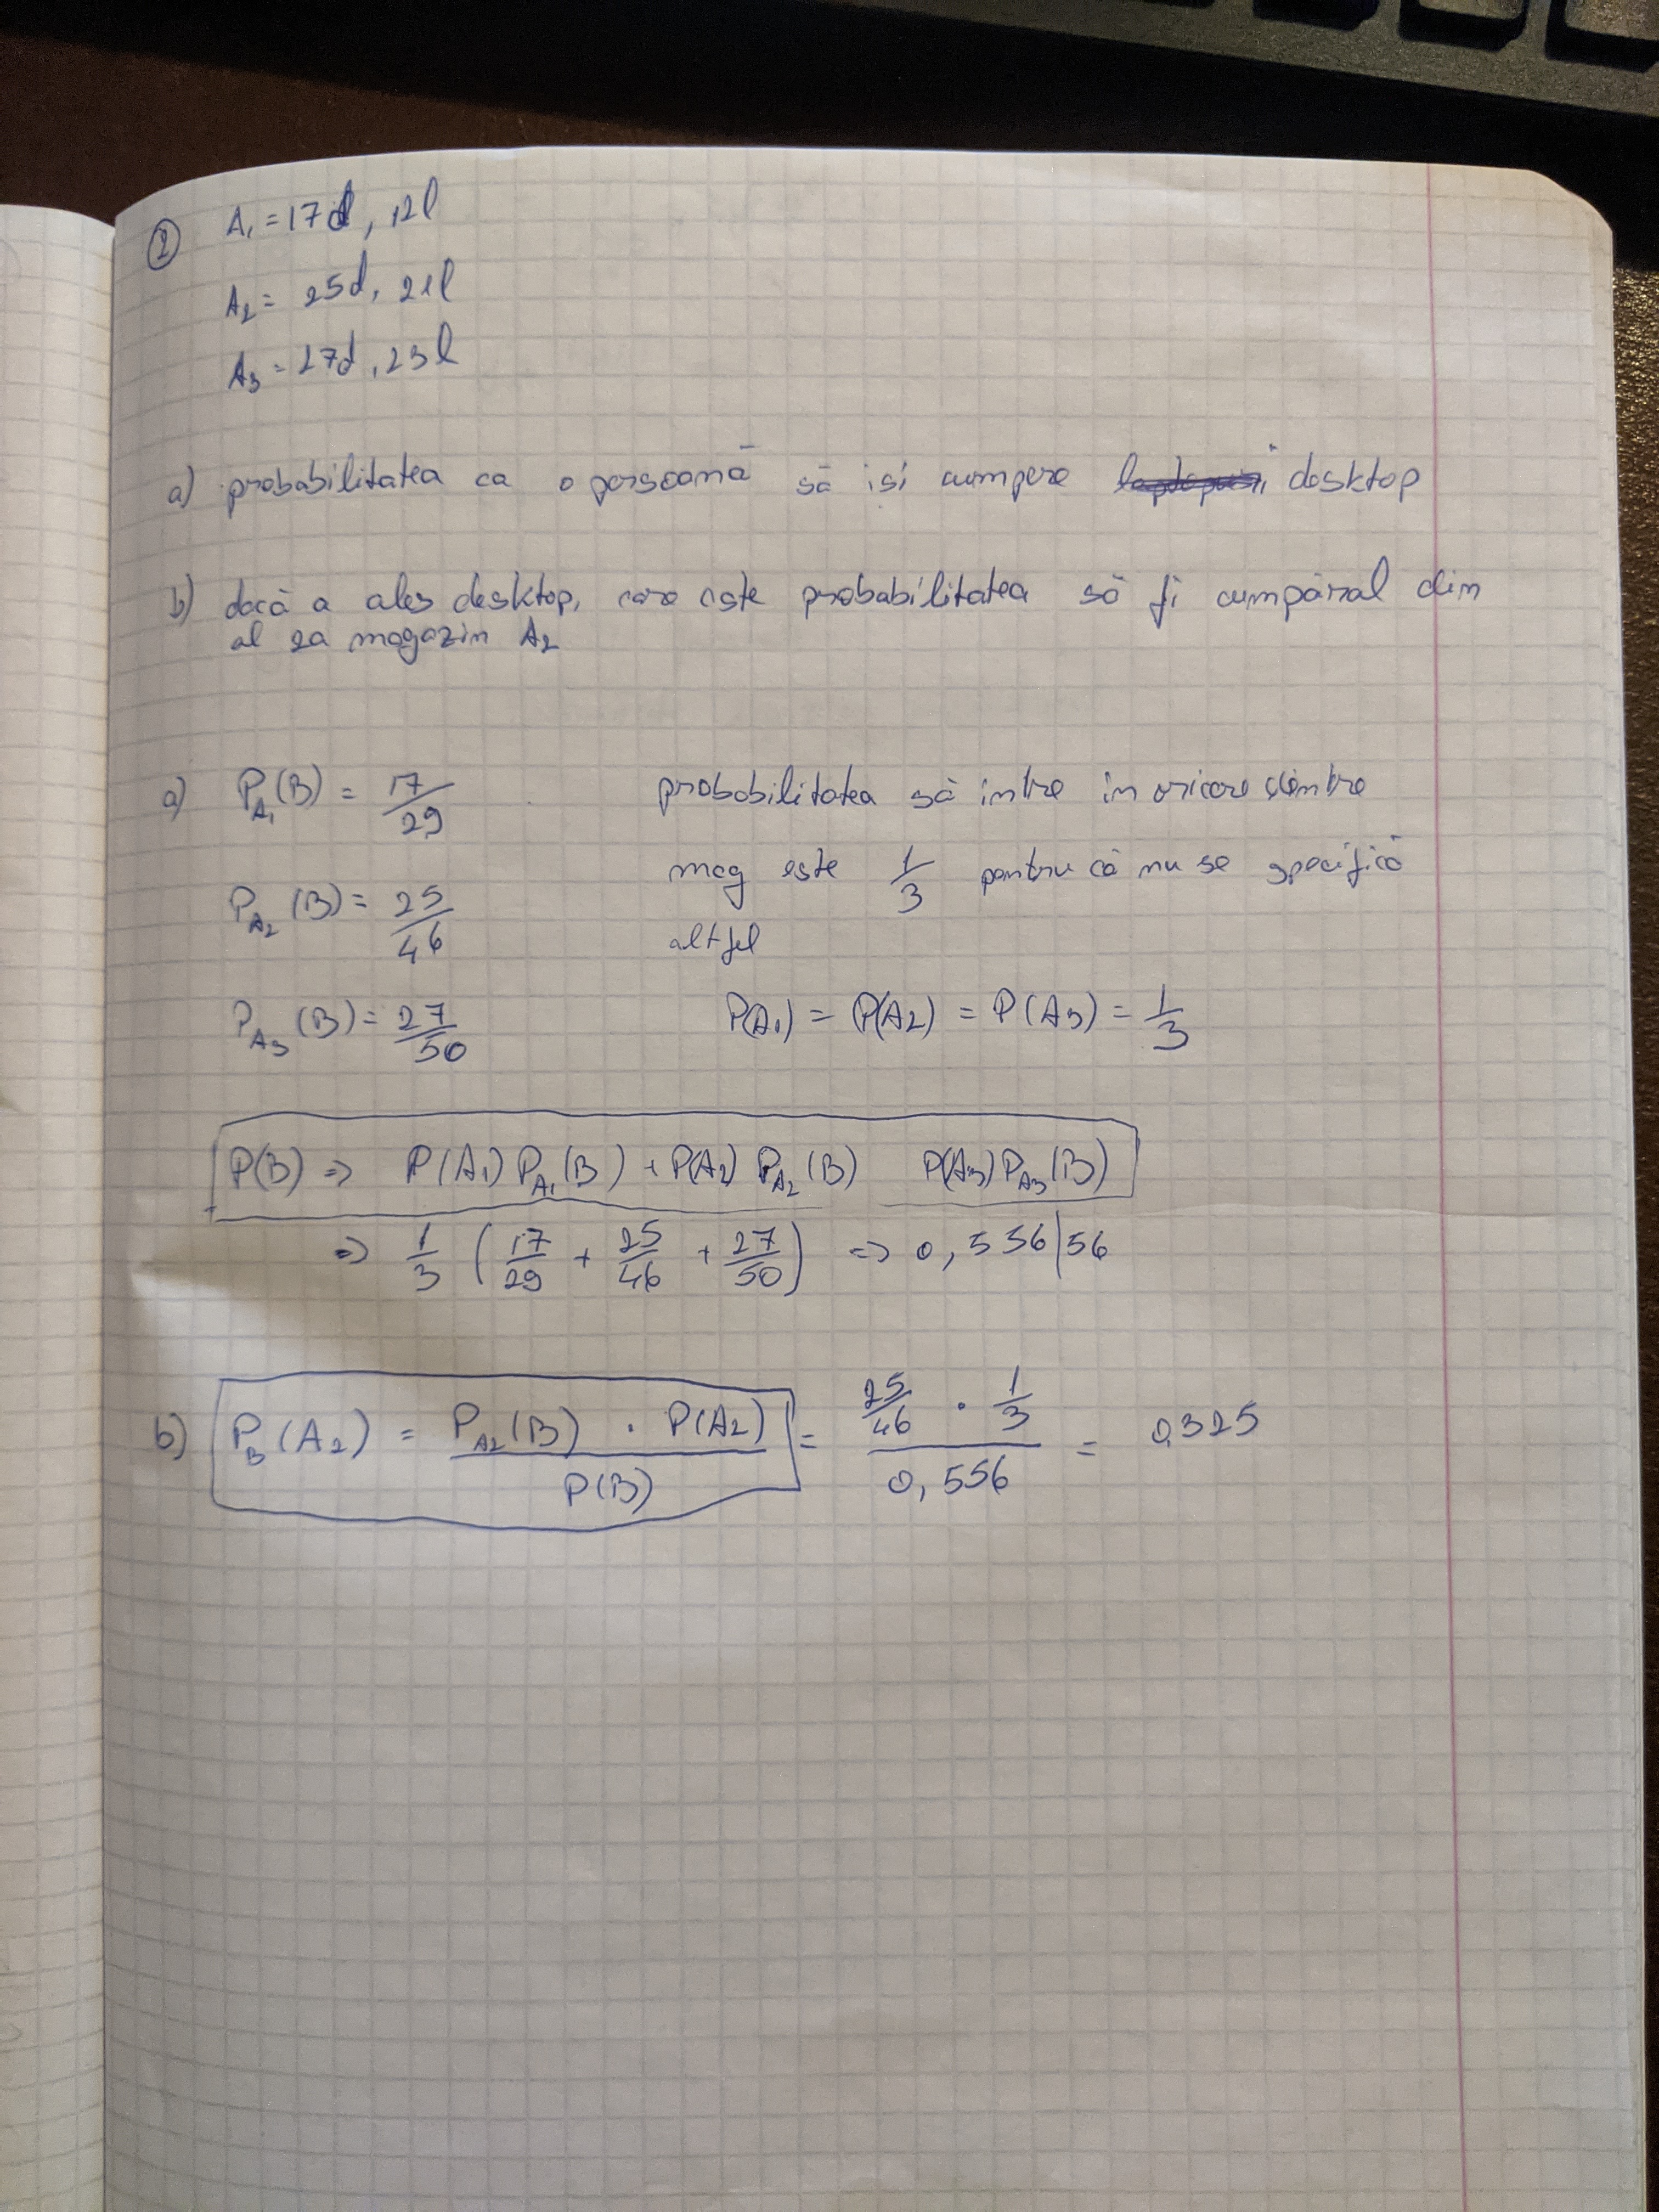 ② A₁ = 17d, 12l
A₂ = 25d, 21l
A₃ = 27d, 23l
a) probabilitatea ca o persoană să isi cumpere desktop
b) dacă a ales desktop, care este probabilitatea să fi cumpărat din
al 2a magazin A₂
a) P_A₁(B) = 17/29 probabilitatea să intre in oricare dintre
mag este 1/3 pentru că nu se specifică
P_A₂(B) = 25/46 altfel
P_A₃(B) = 27/50 P(A₁) = P(A₂) = P(A₃) = 1/3
P(B) => P(A₁) P_A₁(B) + P(A₂) P_A₂(B) P(A₃) P_A₃(B)
=> 1/3 (17/29 + 25/46 + 27/50) => 0,556|56
b) P_B(A₂) = P_A₂(B) · P(A₂) / P(B) = 25/46 · 1/3 / 0,556 = 0,325